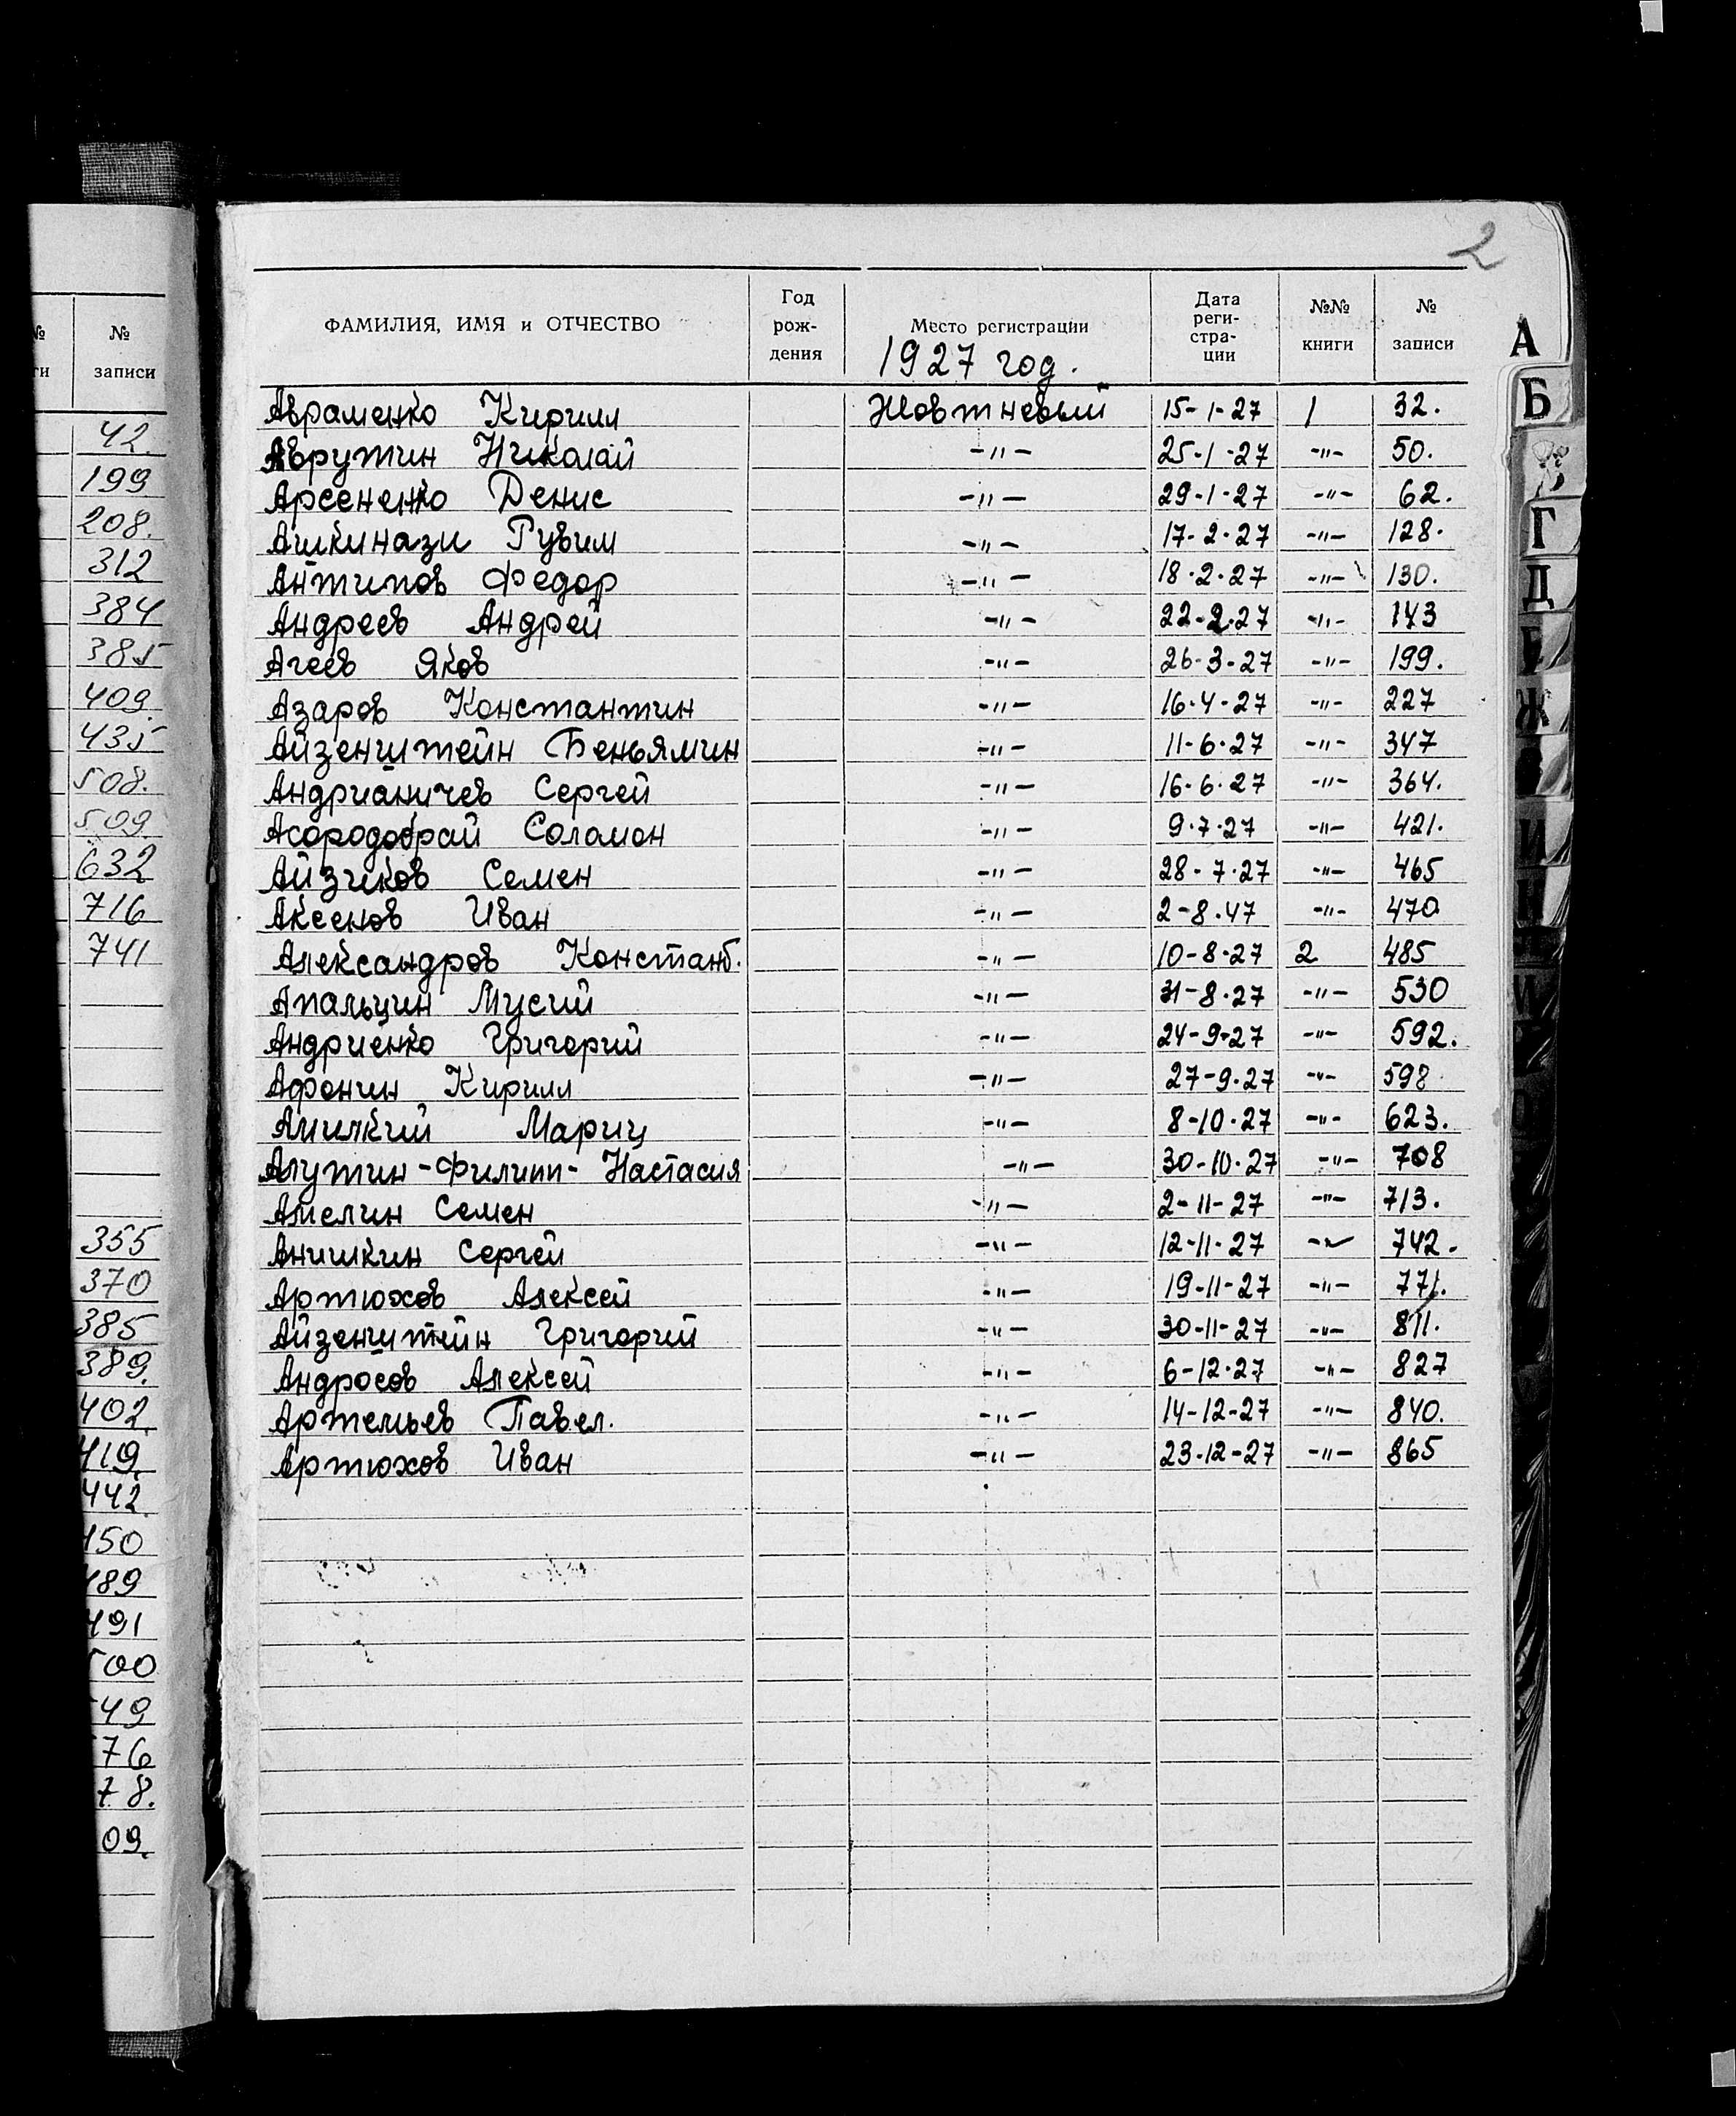 2
ФАМИЛИЯ, ИМЯ и ОТЧЕСТВО Год рож- дения Место регистрации Дата реги- стра- ции №№ книги № записи
1927 год.
Авраменко Кирилл Жовтневый 15-1-27 1 32.
Аврутин Николай -"- 25-1-27 -"- 50.
Арсененко Денис -"- 29-1-27 -"- 62.
Ашкинази Рувим -"- 17-2-27 -"- 128.
Антипов Федор -"- 18.2.27 -"- 130.
Андреев Андрей -"- 22-2.27 -"- 143
Агеев Яков -"- 26-3-27 -"- 199.
Азаров Константин -"- 16.4-27 -"- 227
Айзенштейн Беньямин -"- 11-6.27 -"- 347
Андрианичев Сергей -"- 16-6.27 -"- 364.
Асородобрай Соламон -"- 9.7.27 -"- 421.
Айзиков Семен -"- 28-7.27 -"- 465
Аксенов Иван -"- 2-8.47 -"- 470
Александров Констанб. -"- 10-8.27 2 485
Апальцин Мусий -"- 31-8.27 -"- 530
Андриенко Григорий -"- 24-9-27 -"- 592.
Афонин Кирилл -"- 27-9.27 -"- 598
Амилкий -"- 8-10.27 -"- 623.
Алутин-Филипп-Настасия -"- 30-10.27 -"- 708
Амелин Семен -"- 2-11-27 -"- 713.
Анишкин Сергей -"- 12-11-27 -"- 742.
Артюхов Алексей -"- 19-11-27 -"- 771.
Айзенштейн Григорий -"- 30-11-27 -"- 811.
Андросов Алексей -"- 6-12.27 -"- 827
Артемьев Павел. -"- 14-12-27 -"- 840.
Артюхов Иван -"- 23-12-27 -"- 865
А
Б
Г
Д
Ж
И
№
записи
42.
199
208.
312
384
385
409.
435
508.
509
632
716
741
355
370
385
389.
402.
419.
442.
450
489
491
500
49
76
78.
09.